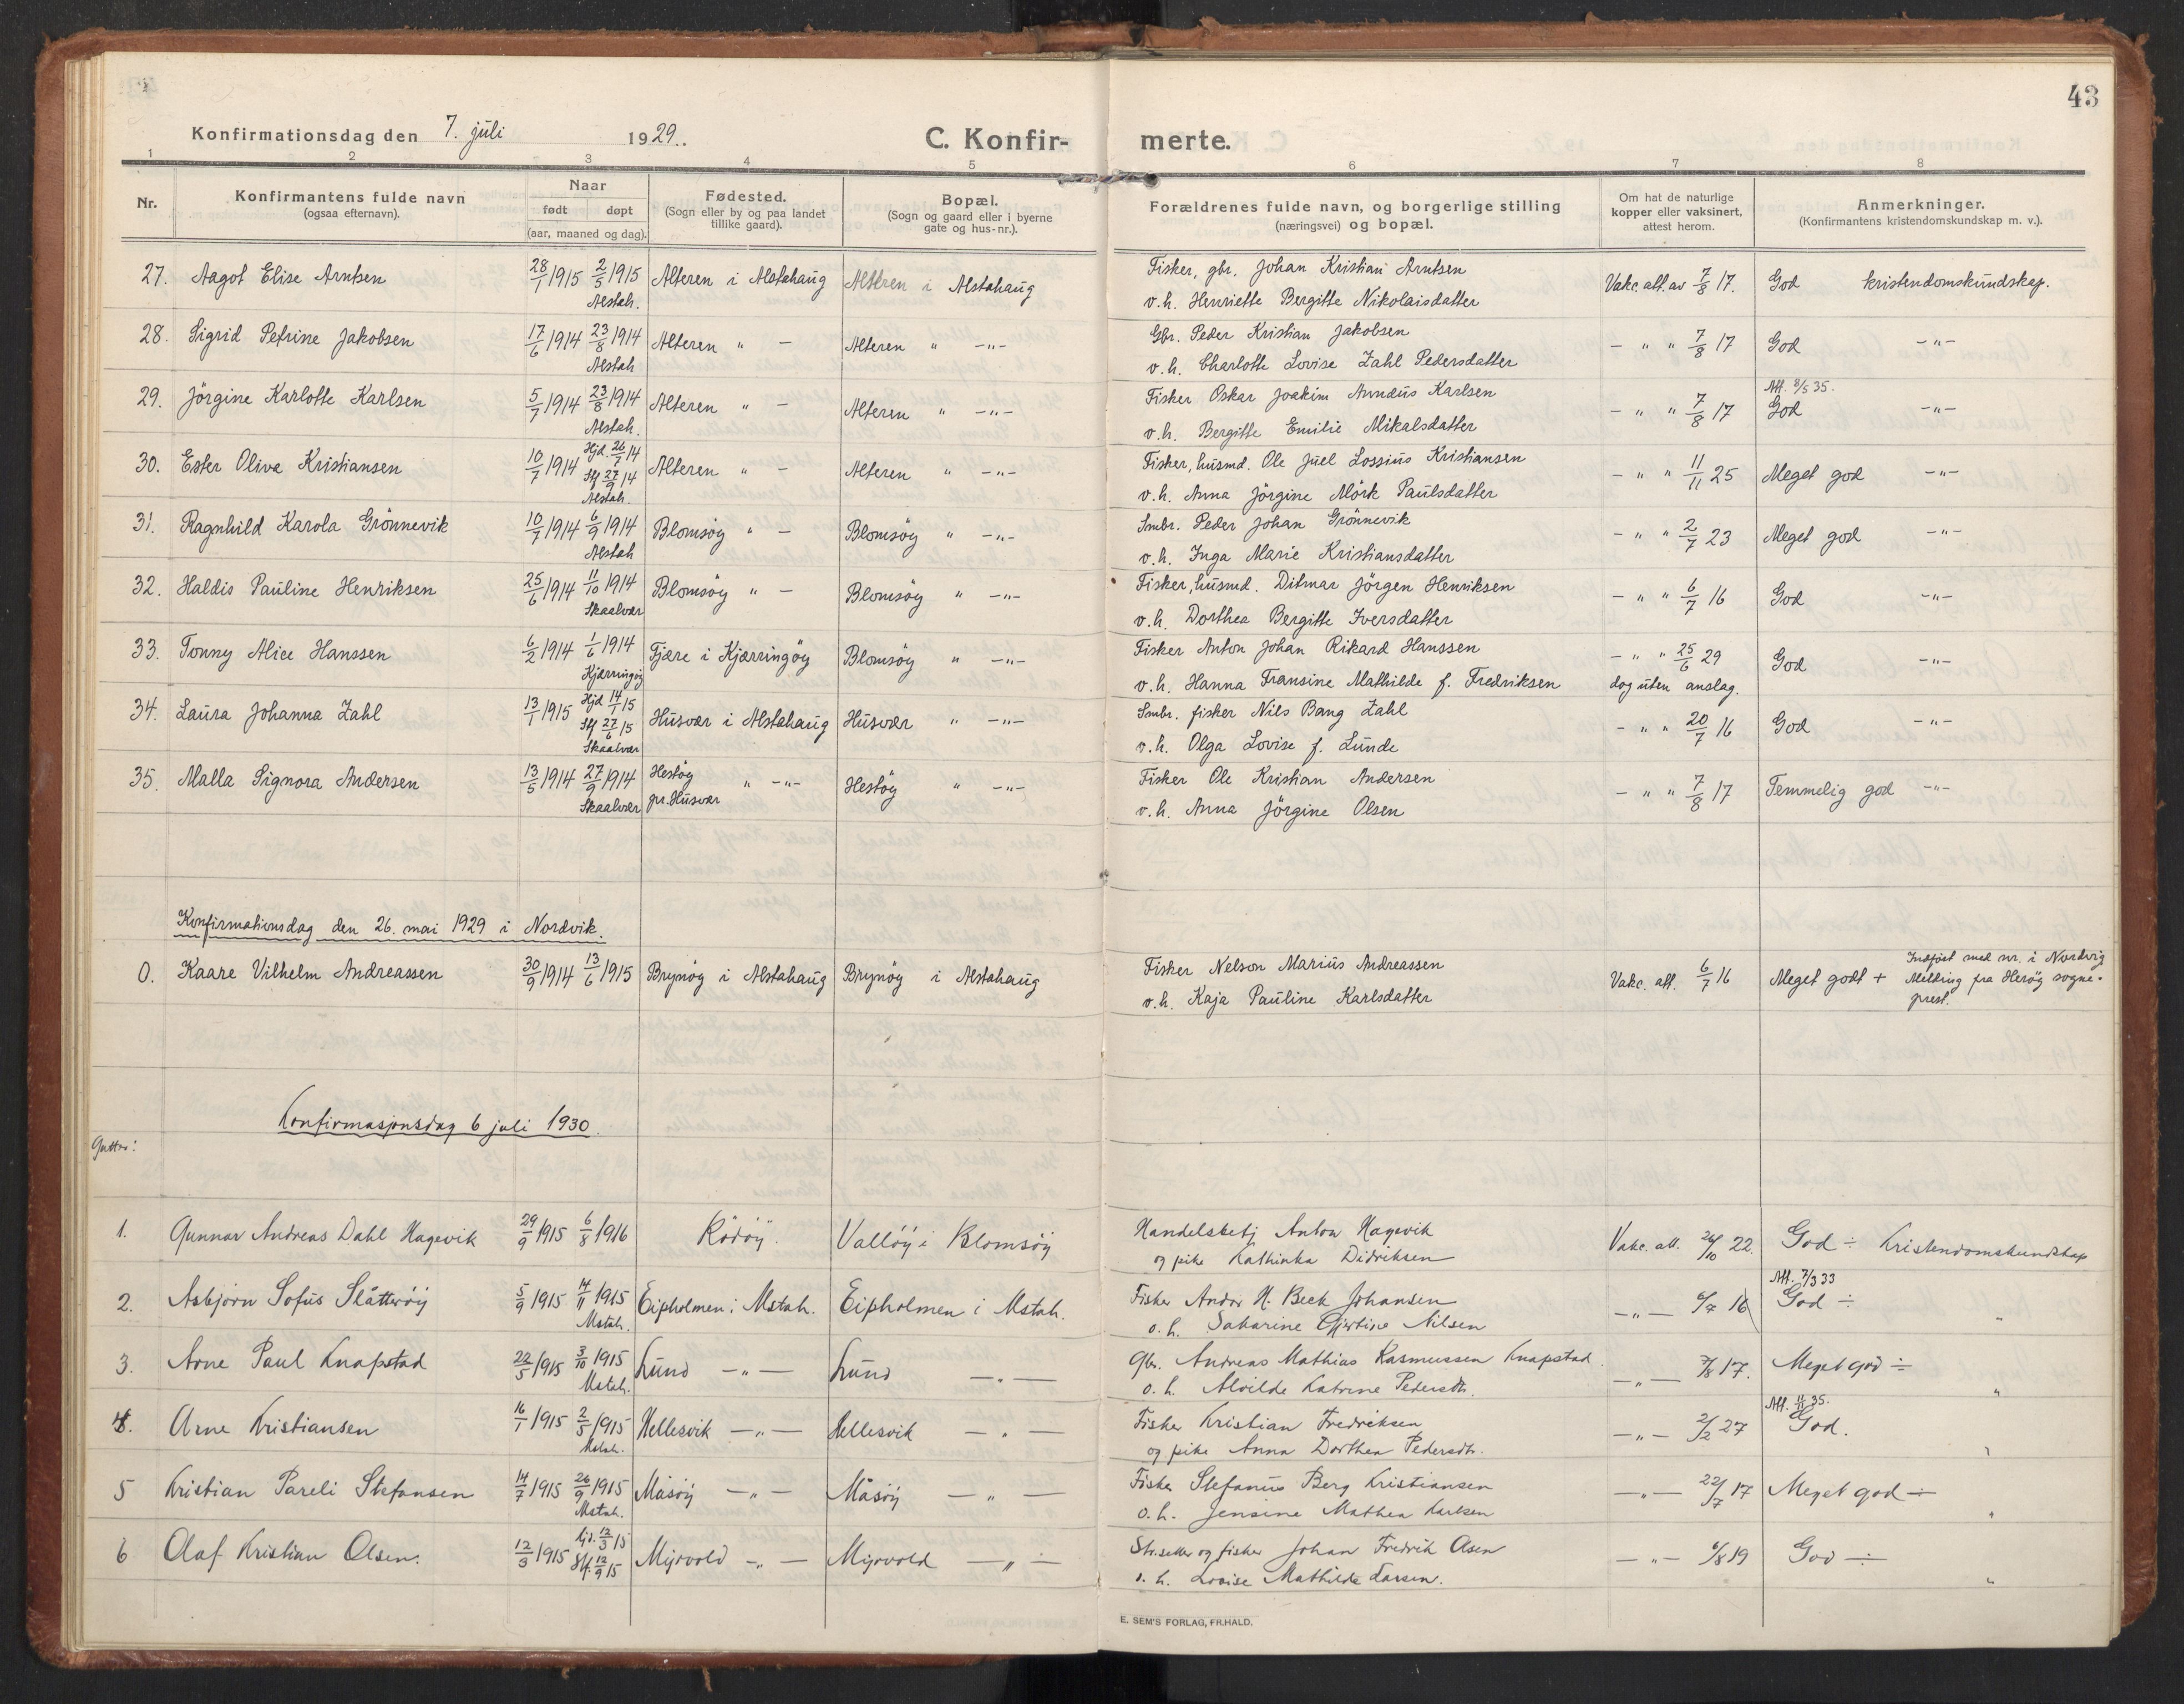 43
Konfirmationsdag den 7. juli 1929.
C. Konfir-
merte.
1 2 3 4 5 6 7 8
Nr.
Konfirmantens fulde navn
(ogsaa efternavn).
Naar
født døpt
(aar, maaned og dag).
Fødested.
(Sogn eller by og paa landet
tillike gaard).
Bopæl.
(Sogn og gaard eller i byerne
gate og hus-nr.).
Forældrenes fulde navn, og borgerlige stilling
(næringsvei) og bopæl.
Om hat de naturlige
kopper eller vaksinert,
attest herom.
Anmerkninger.
(Konfirmantens kristendomskundskap m. v.).
27. Aagot Elise Arntsen 28/1 1915 2/5 1915 Alstah. Alteren i Alstahaug Alteren i Alstahaug
Fisker, gbr. Johan Kristian Arntsen
v.h. Henriette Bergitte Nikolaisdatter
Vakc. att. av 7/8 17. God kristendomskundskap.
28. Sigrid Petrine Jakobsen 17/6 1914 23/8 1914 Alstah Alteren " — Alteren " —"—
Gbr. Peder Kristian Jakobsen
v.h. Charlotte Lovise Zahl Pedersdatter
— " " 7/8 17 God —"—
29. Jörgine Karlotte Karlsen 5/7 1914 23/8 1914 Alstah. Alteren " — Alteren " —"—
Fisker Oskar Joakim Amndus Karlsen
v.h. Bergitte Emilie Mikalsdatter
— " " 7/8 17 Att. 8/5 35. God —"—
30. Ester Oliva Kristiansen 10/7 1914 Hjd. 26/7 14 Stf 27/9 14 Alstah. Alteren " — Alteren " —"—
Fisker, husmd. Ole Juel Lossius Kristiansen
v.h. Anna Jörgine Mörk Paulsdatter
— " " 11/11 25 Meget god —"—
31. Ragnhild Karola Grönnevik 10/7 1914 6/9 1914 Alstah Blomsöy " — Blomsöy " —"—
Smbr. Peder Johan Grönnevik
v.h. Inga Marie Kristiansdatter
— " " 2/7 23 Meget god —"—
32. Haldis Pauline Henriksen 25/6 1914 11/10 1914 Skaalvær Blomsöy " — Blomsöy " —"—
Fisker, husmd. Ditmar Jörgen Henriksen
v.h. Dorthea Bergitte Iversdatter
— " " 6/7 16 God —"—
33. Tonny Alice Hanssen 6/2 1914 1/6 1914 Kjærringöy Tjære i Kjærringöy Blomsöy " —"—
Fisker Anton Johan Rikard Hanssen
v.h. Hanna Fransine Mathilde f. Fredriksen
— " " 25/6 29 dog uten anslag. God —"—
34. Laura Johanna Zahl 13/1 1915 Hjd 14/1 15 Stf 27/6 15 Skaalvær Husvær i Alstahaug Husvær " —"—
Smbr. fisker Nils Bang Zahl
v.h. Olga Lovise f. Lunde
— " " 20/7 16 God —"—
35. Malla Signora Andersen 13/5 1914 27/9 1914 Skaalvær Hestöy pr. Husvær " —"— Hestöy " —"—
Fisker Ole Kristian Andersen
v.h. Anna Jörgine Olsen
— " " 7/8 17 Temmelig god —"—
Konfirmationsdag den 26. mai 1929 i Nordvik.
0. Kaare Vilhelm Andreassen 30/9 1914 13/6 1915 Brynöy i Alstahaug Brynöy i Alstahaug
Fisker Nelson Marius Andreassen
v.h. Kaja Pauline Karlsdatter
Vakc. att. 6/7 16 Meget godt + Indført med nr. i Nordvig
Melding fra Herøy sogne-
prest.
Konfirmasjonsdag 6 juli 1930.
Gutter:
1. Gunnar Andreas Dahl Hagevik 29/9 1915 6/8 1916 Rödöy. Vallöy i Blomsöy
Handelsbetj Anton Hagevik
og pike Kathinka Didriksen
Vakc. att. 26/10 22. God ÷ Kristendomskundskap
2. Asbjørn Sofus Slåttøy 5/9 1915 14/11 1915 Alstah. Eipholmen i Alstah. Eipholmen i Alstah.
Fisker Andor H. Beck Johansen
v.h. Sabarine Nilsen
—"— 6/7 16 Att. 7/3 33 God ÷ "
3. Arne Paul Knapstad 22/5 1915 3/10 1915 Alstah. Lund —"— Lund —"—
Gbr. Andreas Mathias Rasmussen Knapstad.
v.h. Alvilde Katrine Pedersdtr.
—"— 7/8 17. Meget god ÷ "
4. Arne Kristiansen 16/1 1915 2/5 1915 Alstah. Hellesvik —"— Hellesvik —"—
Fisker Kristian Fredriksen
og pike Anna Dorthea Pedersdtr.
—"— 2/2 27 Att. 11/11 35. God. "
5 Kristian Pareli Stefansen 14/7 1915 26/9 1915 Alstah. Måsöy —"— Måsöy —"—
Fisker Stefanus Berg Kristiansen
v.h. Jensine Mathea Karlsen
—"— 22/7 17 Meget god ÷ "
6 Olaf Kristian Olsen. 12/3 1915 hjd. 12/3 15 Stf. 12/9 15 Myrvold —"— Myrvold —"—
Str.sitter og fisker Johan Fredrik Olsen
v.h. Lovise Mathilde Larsen.
—"— 6/8 19 God ÷ "
E. SEM'S FORLAG, FR.HALD.